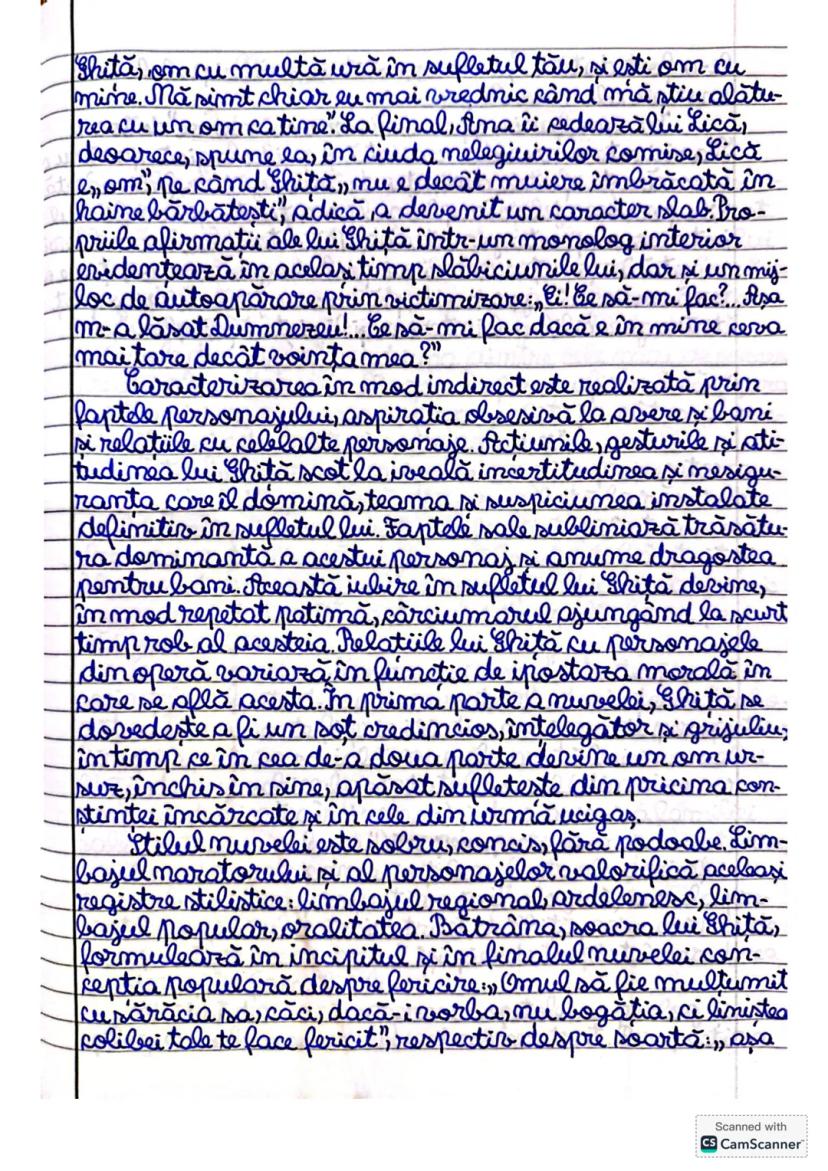 Ghiță, om cu multă ură în sufletul tău, și ești om cu
mine. Mă simt chiar eu mai vrednic când mă știu alătu-
rea cu un om ca tine". La final, Ana îi cedează lui Lică,
deoarece, spune ea, în ciuda nelegiuirilor comise, Lică
e „om", pe când Ghiță „nu e decât muiere îmbrăcată în
haine bărbătești", adică a devenit un caracter slab. Pro-
priile afirmații ale lui Ghiță într-un monolog interior
evidențează în același timp slăbiciunile lui, dar și un mij-
loc de autoapărare prin victimizare: „Ei! Ce să-mi fac?... Așa
m-a lăsat Dumnezeu!... Ce să-mi fac dacă e în mine ceva
mai tare decât voința mea?"
Caracterizarea în mod indirect este realizată prin
faptele personajului, aspirația obsesivă la avere și bani
și relațiile cu celelalte personaje. Acțiunile, gesturile și ati-
tudinea lui Ghiță scot la iveală incertitudinea și nesigu-
ranța care îl domină, teama și suspiciunea instalate
definitiv în sufletul lui. Faptele sale subliniază trăsătu-
ra dominantă a acestui personaj și anume dragostea
pentru bani. Această iubire în sufletul lui Ghiță devine,
în mod repetat patimă, cârciumarul ajungând la scurt
timp rob al acesteia. Relațiile lui Ghiță cu personajele
din operă variază, în funcție de ipostaza morală în
care se află acesta. În prima parte a nuvelei, Ghiță se
dovedește a fi un soț credincios, înțelegător și grijuliu,
în timp ce în cea de-a doua parte devine un om ur-
suz, închis în sine, apăsat sufletește din pricina con-
stinței încărcate și în cele din urmă ucigaș.
Stilul nuvelei este sobru, concis, fără podoabe. Lim-
bajul naratorului și al personajelor valorifică aceleași
registre stilistice: limbajul regional, ardelenesc, lim-
bajul popular, oralitatea. Bătrâna, soacra lui Ghiță,
formulează în incipitul și în finalul nuvelei con-
cepția populară despre fericire: „Omul să fie mulțumit
cu sărăcia sa, căci, dacă-i vorba, nu bogăția, ci liniștea
colibei tale te face fericit", respectiv despre soartă: „așa
Scanned with
CS CamScanner